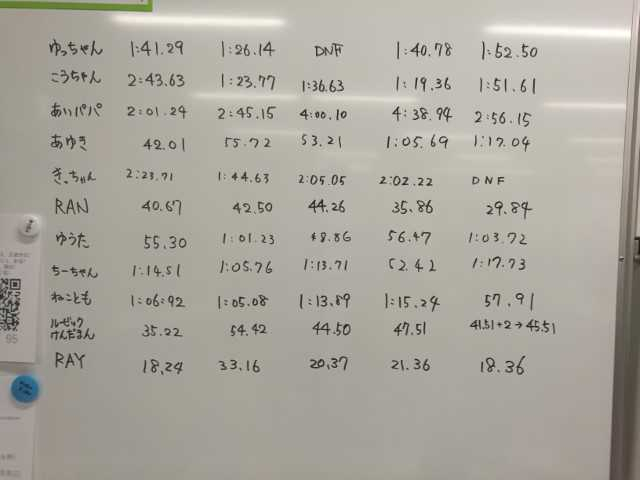 ゆっちゃん 1:41.29 1:26.14 DNF 1:40.78 1:52.50
こうちゃん 2:43.63 1:23.77 1:36.63 1:19.36 1:51.61
あいパパ 2:01.24 2:45.15 4:00.10 4:38.94 2:56.15
あゆき 42.01 55.72 53.21 1:05.69 1:17.04
きっちゃん 2:23.71 1:44.63 2:05.05 2:02.22 DNF
RAN 40.67 42.50 44.26 35.86 29.84
ゆうた 55.30 1:01.23 48.86 56.47 1:03.72
ちーちゃん 1:14.51 1:05.76 1:13.71 52.42 1:17.73
ねことも 1:06:92 1:05.08 1:13.89 1:15.24 57.91
ルービック
けんだまん 35.22 54.42 44.50 47.51 41.51+2→45.51
RAY 18.24 33.16 20.37 21.36 18.36
95